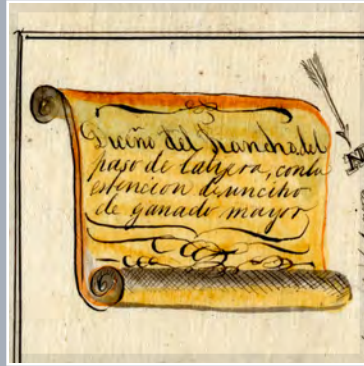 Diceño del Rancho del
paso de la
estencion de un citio
de ganado mayor
N